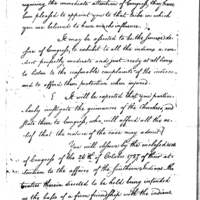 requiring the immediate attention of Congress, they have
been pleased to appoint you to that duty in which
you are believed to have much influence.
It may be asserted to be the fervent de-
sire of Congress, to exhibit to all the indians a con-
duct perfectly moderate and just - ready at all times
to listen to the reasonable complaints of the indians
and to afford them protection when injured.
It will be expected that you particu-
larly investigate the grievances of the Cherokees and
state them to Congress, who will afford all the re-
lief that the nature of the case may admit.
You will observe by the enclosed act
of Congress of the 26th of October 1787 of their at-
tention to the affairs of the southern Indians, the
treaties therein directed to be held being intended
as the basis of a firm friendship with the indians